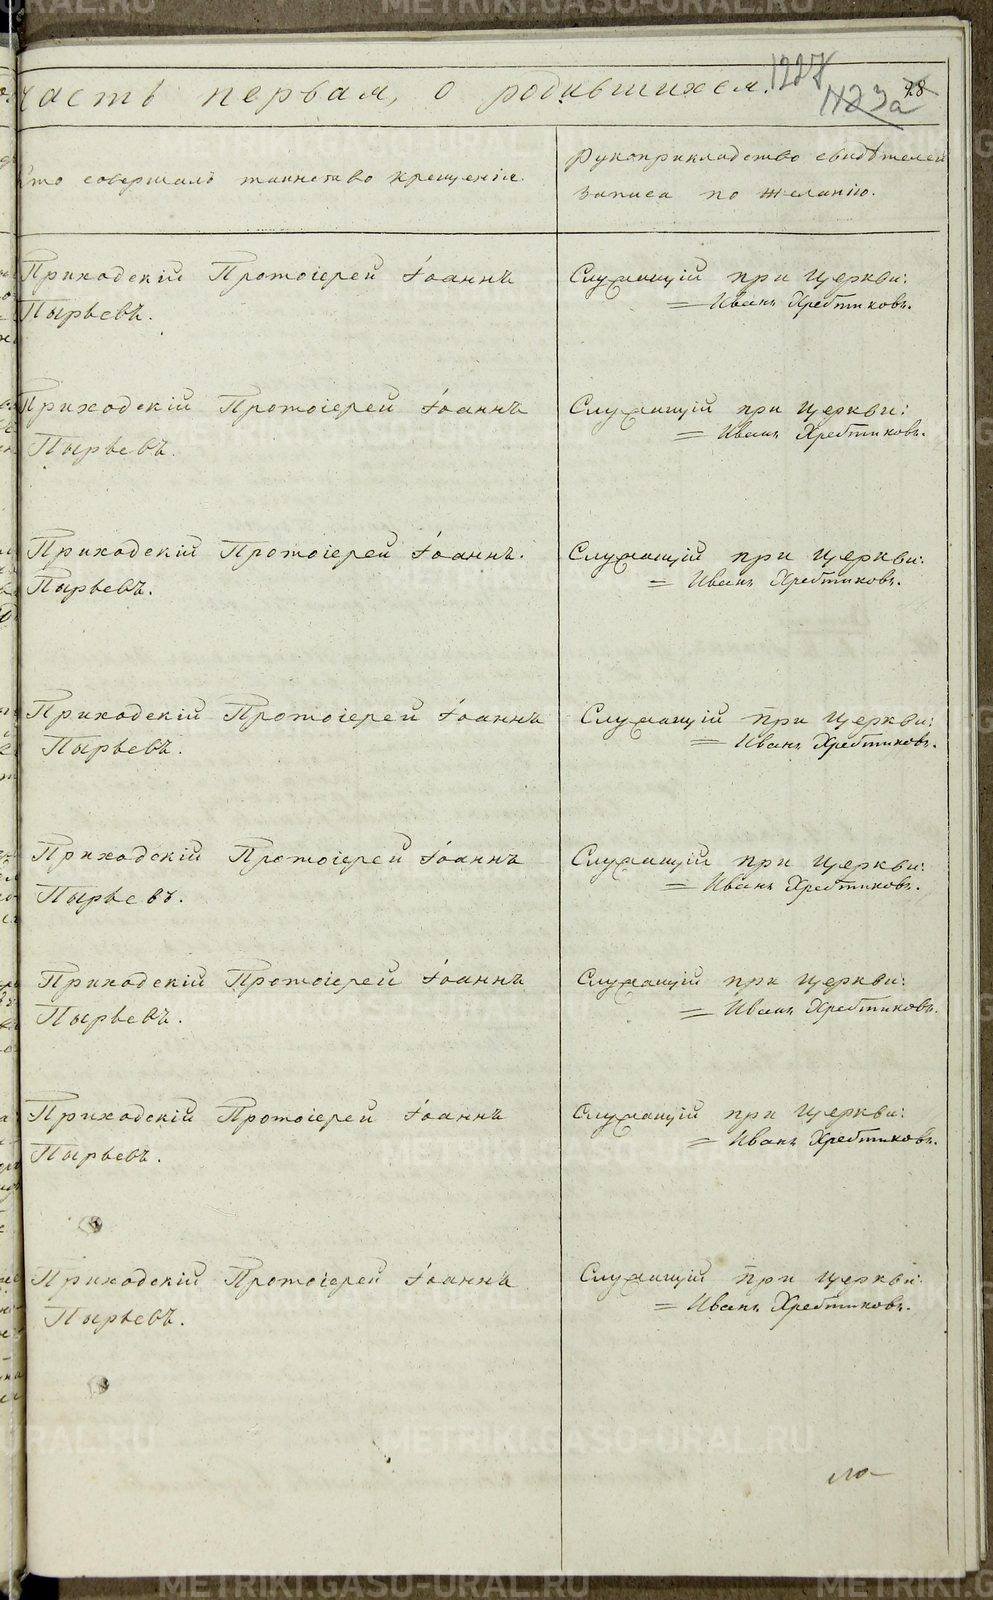 часть первая, о родившихся.
1227
1123а
78
Кто совершалъ таинство крещенія.
Рукоприкладство свидѣтелей
записа по желанію.
Приходскій Протоіерей Іоаннъ
Пырьевъ.
Служащій при Церкви:
= Иванъ Хребтиковъ.
Приходскій Протоіерей Іоаннъ
Пырьевъ.
Служащій при Церкви:
= Иванъ Хребтиковъ.
Приходскій Протоіерей Іоаннъ.
Пырьевъ.
Служащій при Церкви:
= Иванъ Хребтиковъ.
Приходскій Протоіерей Іоаннъ
Пырьевъ.
Служащій при Церкви:
= Иванъ Хребтиковъ.
Приходскій Протоіерей Іоаннъ
Пырьевъ.
Служащій при Церкви:
= Иванъ Хребтиковъ.
Приходскій Протоіерей Іоаннъ
Пырьевъ.
Служащій при Церкви:
= Иванъ Хребтиковъ.
Приходскій Протоіерей Іоаннъ
Пырьевъ.
Служащій при Церкви:
= Иванъ Хребтиковъ.
Приходскій Протоіерей Іоаннъ
Пырьевъ.
Служащій при Церкви:
= Иванъ Хребтиковъ.
METRIKI.GASO-URAL.RU